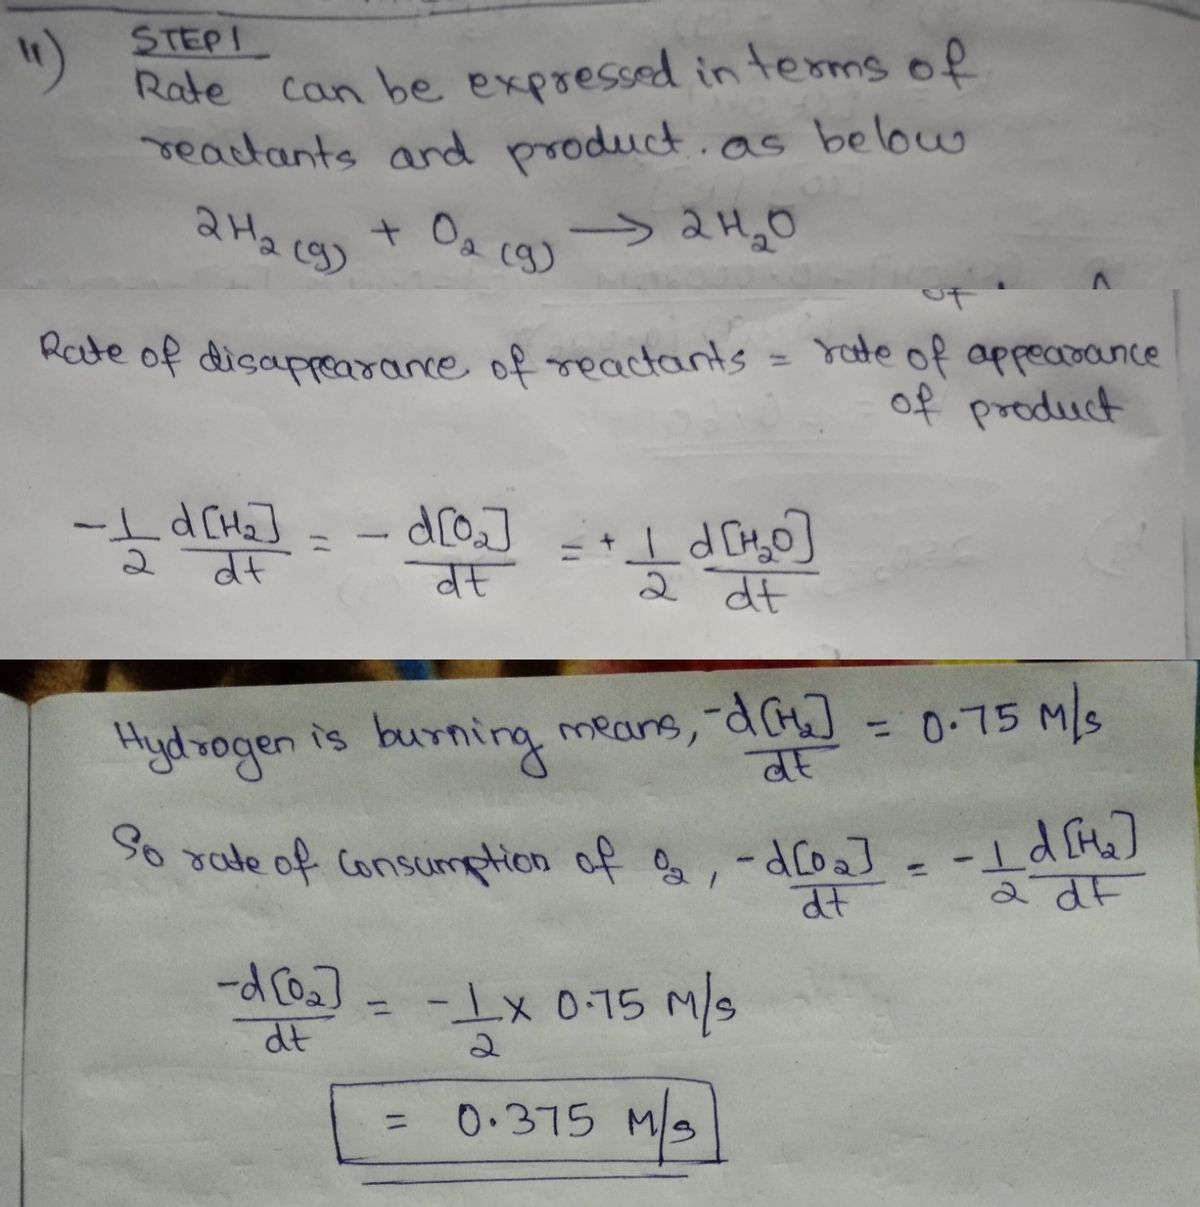 11) STEP 1
Rate can be expressed in terms of
reactants and product. as below
2H₂ (g) + O₂ (g) → 2H₂O
of
Rate of disappearance of reactants = rate of appearance
of product
-1/2 d[H₂]/dt = - d[O₂]/dt = + 1/2 d[H₂O]/dt
Hydrogen is burning means, -d[H₂]/dt = 0.75 M/s
So rate of consumption of O₂, -d[O₂]/dt = -1/2 d[H₂]/dt
-d[O₂]/dt = -1/2 x 0.75 M/s
= 0.375 M/s